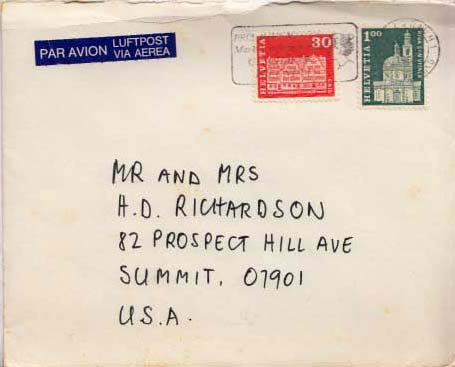 PAR AVION LUFTPOST
VIA AEREA
30
HELVETIA
1.00
HELVETIA
MR AND MRS
H.D. RICHARDSON
82 PROSPECT HILL AVE
SUMMIT, 07901
U.S.A.